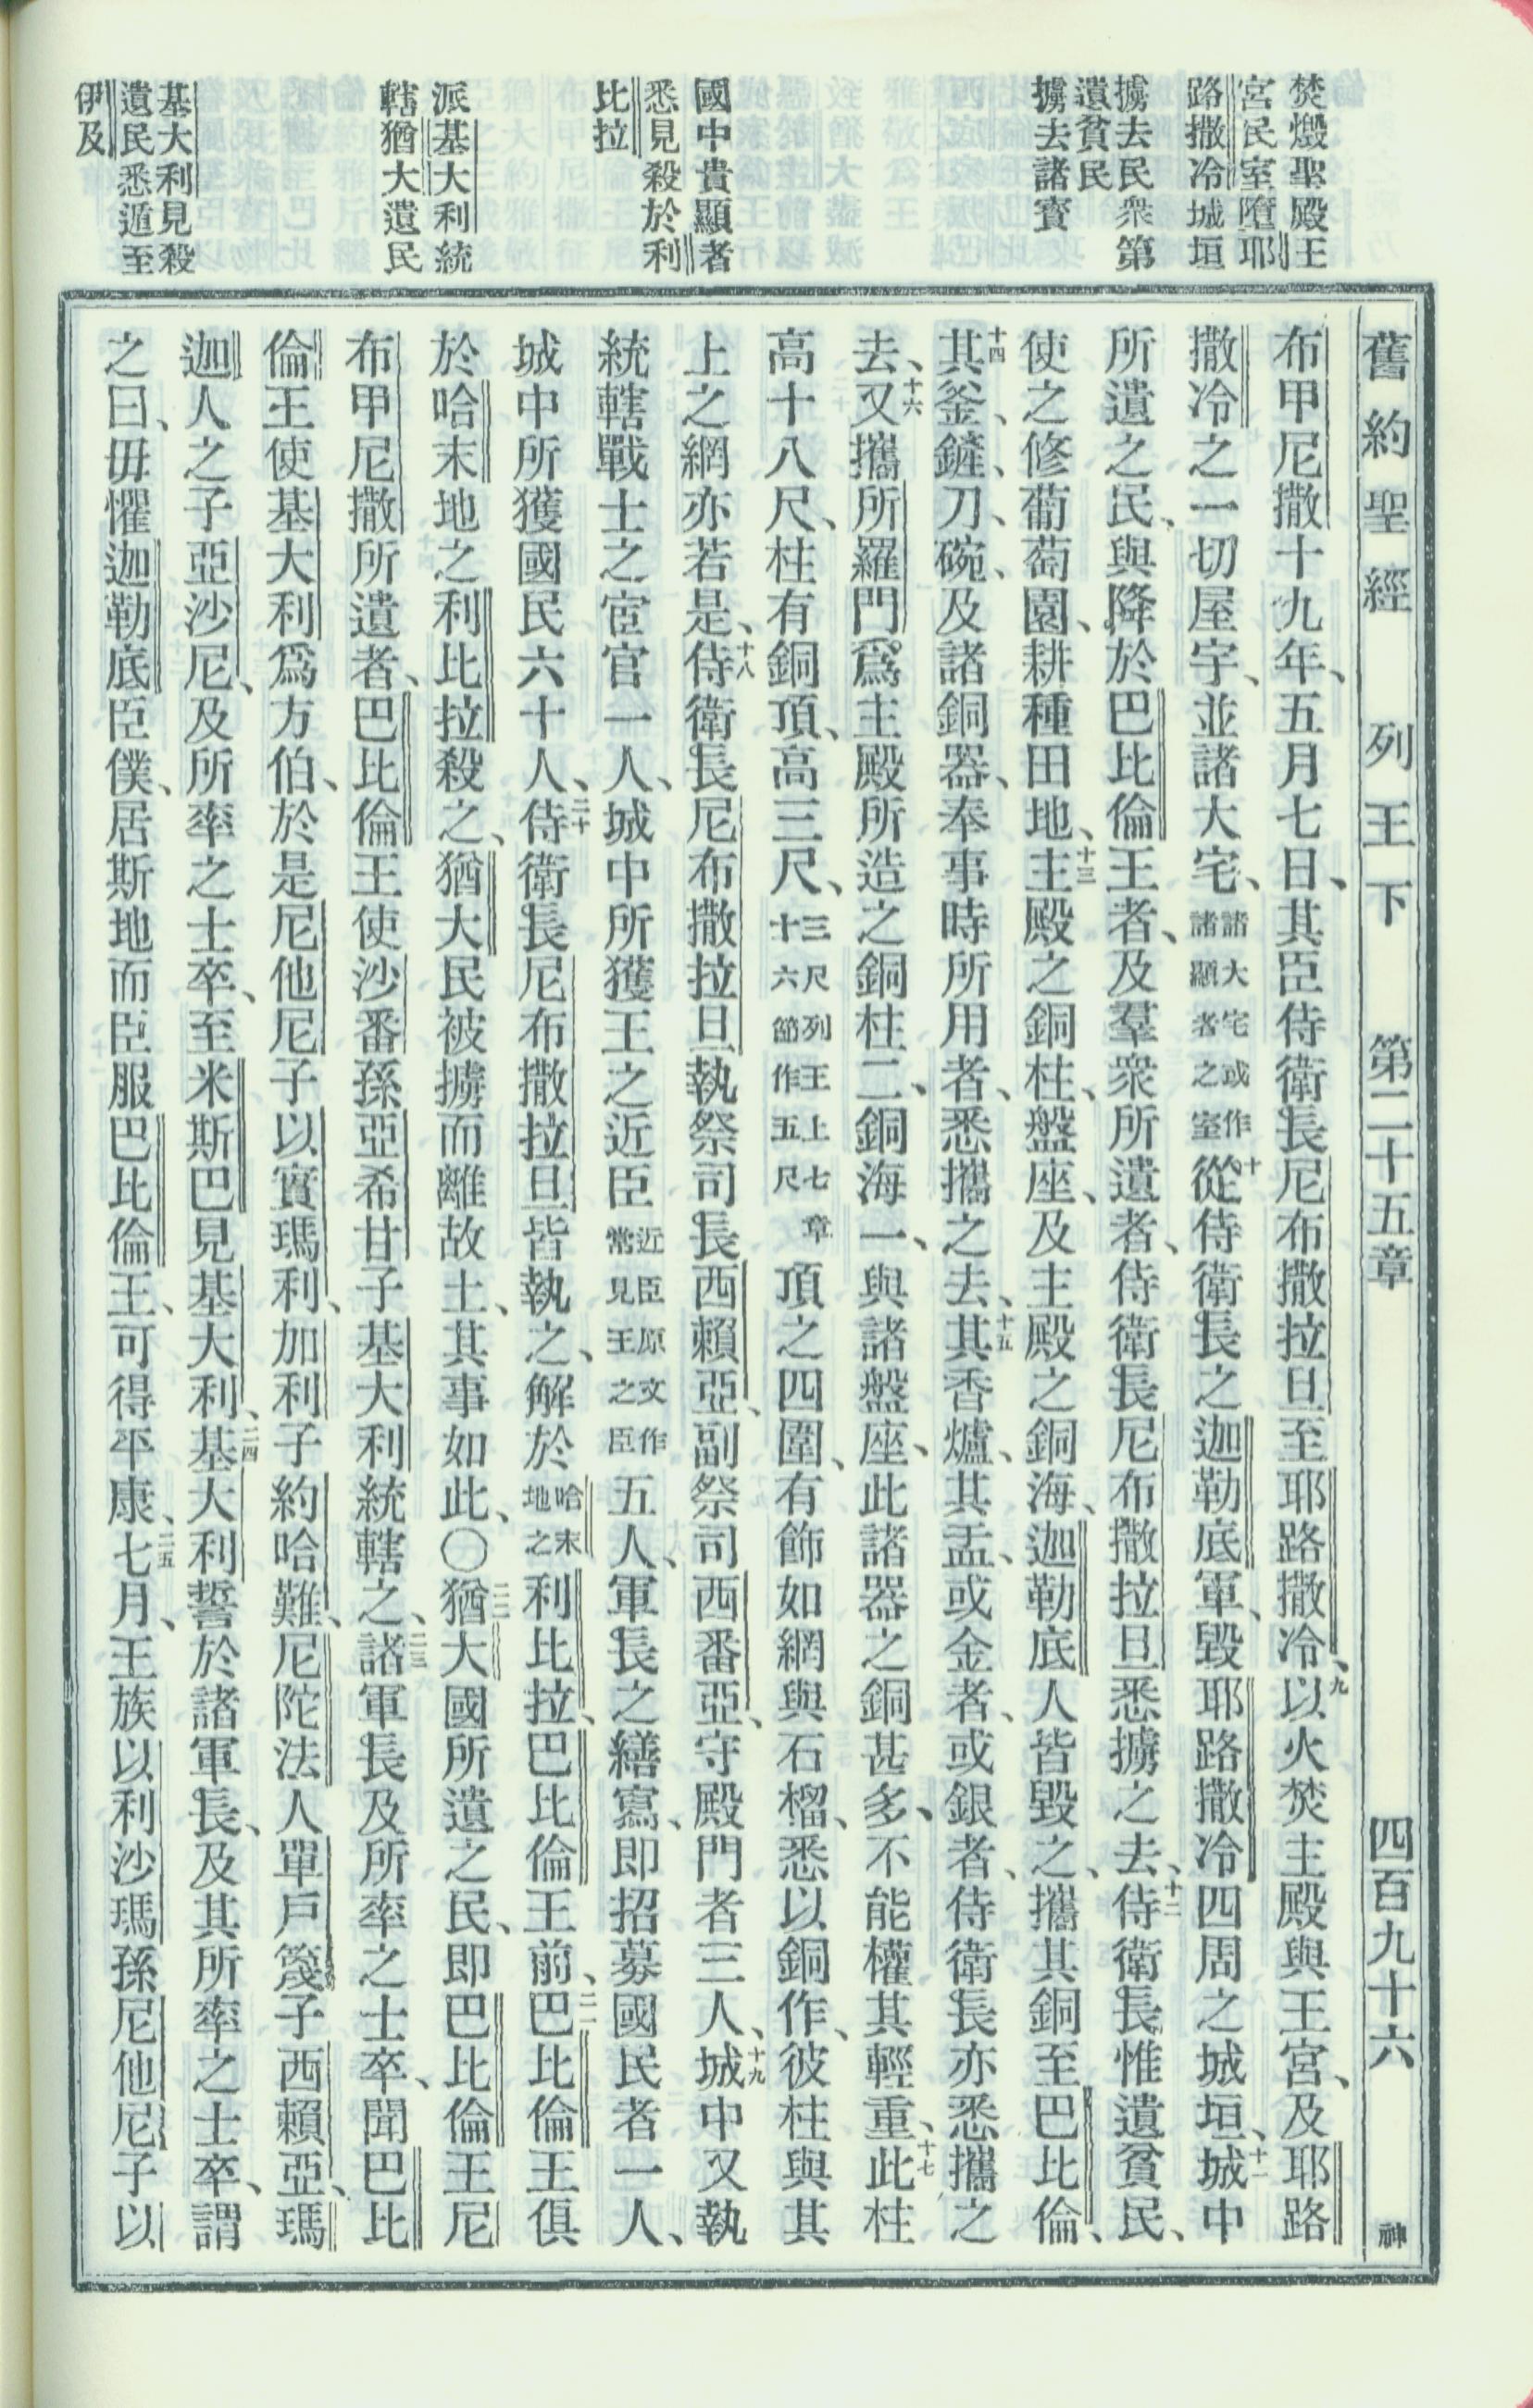 焚燬聖殿王
宮民室隳耶
路撒冷城垣
擄去民衆第
遺貧民
擄去諸寳
國中貴顯者
悉見殺於利
比拉
派基大利統
轄猶大遺民
基大利見殺
遺民悉遁至
伊及
舊約聖經 列王下 第二十五章 四百九十六 神
布甲尼撒十九年、五月七日、其臣侍衛長尼布撒拉旦至耶路撒冷、九以火焚主殿與王宮、及耶路
撒冷之一切屋宇、並諸大宅、諸大宅或作諸顯者之室十從侍衛長之迦勒底軍、毀耶路撒冷四周之城垣、十一城中
所遺之民、與降於巴比倫王者、及羣衆所遺者、侍衛長尼布撒拉旦悉擄之去、十二侍衛長惟遺貧民、
使之修葡萄園、耕種田地、十三主殿之銅柱、盤座、及主殿之銅海、迦勒底人皆毀之、攜其銅至巴比倫、
十四其釜、鏟、刀、碗、及諸銅器、奉事時所用者、悉攜之去、十五其香爐、其盂、或金者、或銀者、侍衛長亦悉攜之
去、十六又攜所羅門爲主殿所造之銅柱二、銅海一、與諸盤座、此諸器之銅甚多、不能權其輕重、十七此柱
高十八尺、柱有銅頂、高三尺、三尺列王上七章十六節作五尺頂之四圍、有飾如網與石榴、悉以銅作、彼柱與其
上之網亦若是、十八侍衛長尼布撒拉旦執祭司長西賴亞、副祭司西番亞、守殿門者三人、十九城中又執
統轄戰士之宦官一人、城中所獲王之近臣近臣原文作常見王之臣五人、軍長之繕寫、即招募國民者一人、
城中所獲國民六十人、二十侍衛長尼布撒拉旦皆執之、解於哈末地之利比拉、巴比倫王前、二一巴比倫王俱
於哈末地之利比拉殺之、猶大民被擄而離故土、其事如此、○二二猶大國所遺之民、即巴比倫王尼
布甲尼撒所遺者、巴比倫王使沙番孫亞希甘子基大利統轄之、二三諸軍長及所率之士卒、聞巴比
倫王使基大利爲方伯、於是尼他尼子以實瑪利、加利子約哈難、尼陀法人單戶篾子西賴亞、瑪
迦人之子亞沙尼、及所率之士卒、至米斯巴見基大利、二四基大利誓於諸軍長、及其所率之士卒、謂
之曰、毋懼迦勒底臣僕、居斯地而臣服巴比倫王、可得平康、二五七月、王族以利沙瑪孫尼他尼子以